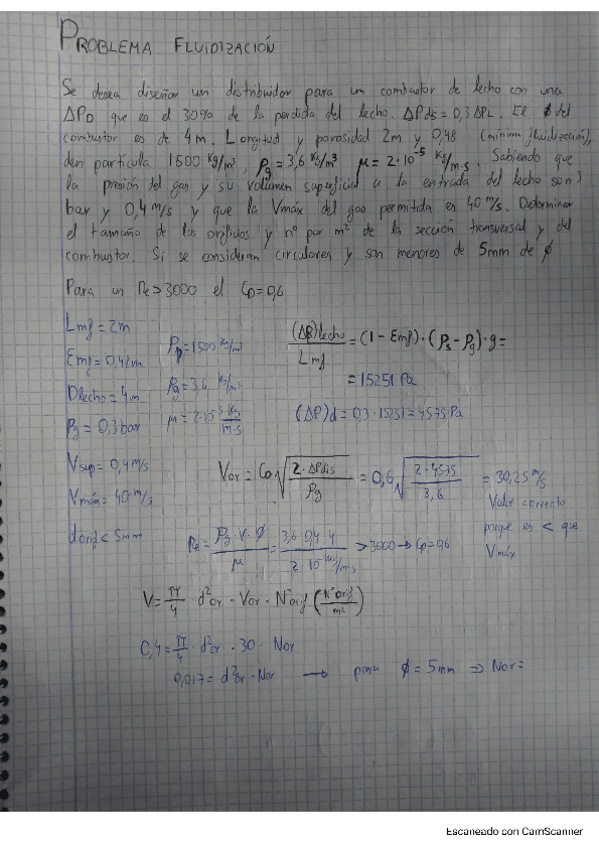 PROBLEMA FLUIDIZACIÓN
Se desea diseñar un distribuidor para un combustor de lecho con una
ΔPD que es el 30% de la perdida del lecho. ΔPdis = 0,3 ΔPL. El ϕ del
combustor es de 4m. Longitud y porosidad 2m y 0,48 (minima fluidización),
den partícula 1500 kg/m³, ρg = 3,6 kg/m³ μ = 2·10⁻⁵ kg/m·s. Sabiendo que
la presión del gas y su volumen superficial a la entrada del lecho son 3
bar y 0,4 m/s y que la Vmáx del gas permitida es 40 m/s. Determinar
el tamaño de los orificios y nº por m² de la sección transversal y del
combustor. Si se consideran circulares y son menores de 5mm de ϕ
Para un Re > 3000 el CD = 0,6
Lmf = 2m
Emf = 0,42m
Dlecho = 4m
Pg = 0,3 bar
Vsup = 0,4 m/s
Vmáx = 40 m/s
dorif < 5mm
ρp = 1500 kg/m³
ρg = 3,6 kg/m³
μ = 2·10⁻⁵ kg/m·s
(ΔP)lecho / Lmf = (1 - Emf) · (ρs - ρg) · g =
= 15251 Pa
(ΔP)d = 0,3 · 15251 = 4575 Pa
Vor = CD √(2·ΔPdis / ρg) = 0,6 √(2·4575 / 3,6) = 30,25 m/s
Valor correcto
porque es < que
Vmáx
Re = ρg · V · ϕ / μ = 3,6·0,4·4 / 2·10⁻⁵ kg/m·s > 3000 → CD = 0,6
V = π/4 · d²or · Vor · Nºorif (Nºorif / m²)
0,4 = π/4 · d²or · 30 · Nor
0,017 = d²or · Nor → para ϕ = 5mm ⇒ Nor =
Escaneado con CamScanner